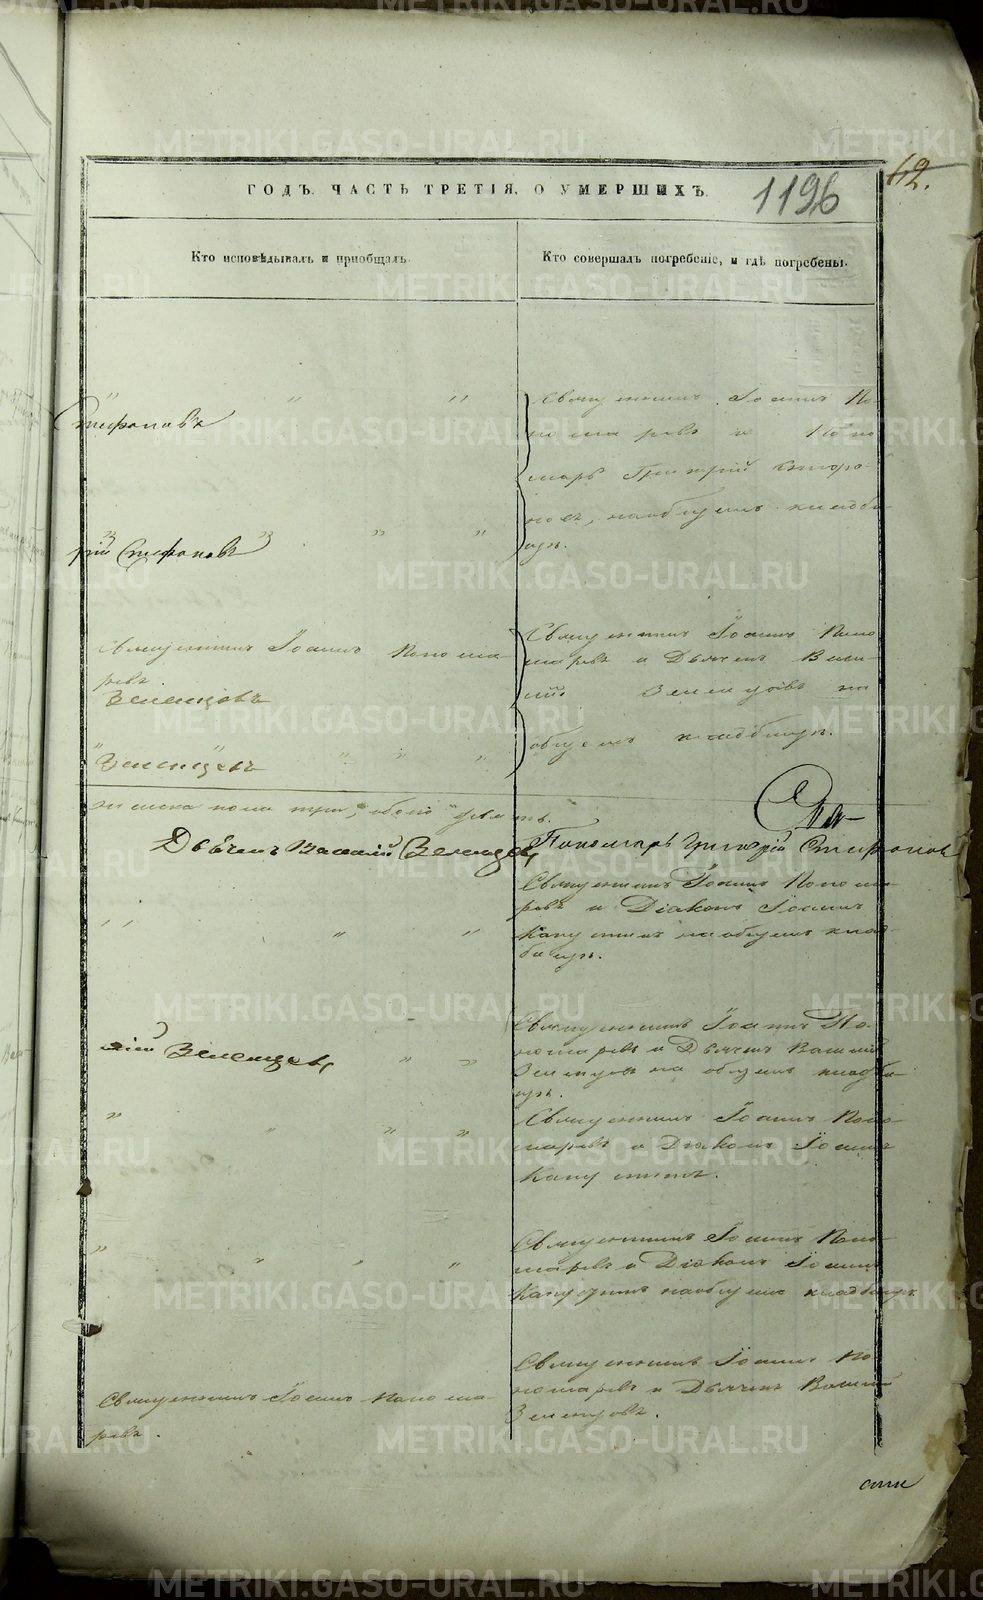 ГОДЪ. ЧАСТЬ ТРЕТІЯ, О УМЕРШИХЪ.
1196
62.
Кто исповѣдывалъ и пріобщалъ.
Кто совершалъ погребеніе, и гдѣ погребены.
Стефановъ
Священникъ Іоаннъ По-
номаревъ и Поно
марь Григорій
наобщемъ кладби
щѣ.
рій Стефановъ
Священникъ Іоаннъ Понома-
ревъ.
Зеленцовъ
Зеленцевъ
Священникъ Іоаннъ Поно
маревъ и Дьячекъ Васи-
лій Зеленцовъ на
общемъ кладбищѣ.
женска пола три, обоего
Дьячекъ Василій Зеленцев,
Пономарь Григорій Стефанов
Священникъ Іоаннъ Понома-
ревъ и Діаконъ Іоаннъ
наобщемъ клад-
бищѣ.
лій Зеленцев,
Священникъ Іоаннъ По-
номаревъ и Дьячекъ Василій
Зеленцовъ на общемъ кладби-
щѣ.
Священникъ Іоаннъ Поно-
маревъ и Діаконъ Іоаннъ
Священникъ Іоаннъ Поно-
маревъ и Діаконъ Іоаннъ
наобщемъ кладбищѣ
Священникъ Іоаннъ По-
номаревъ и Дьячекъ Василій
Зеленцовъ.
Священникъ Іоаннъ Понома-
ревъ.
METRIKI.GASO-URAL.RU